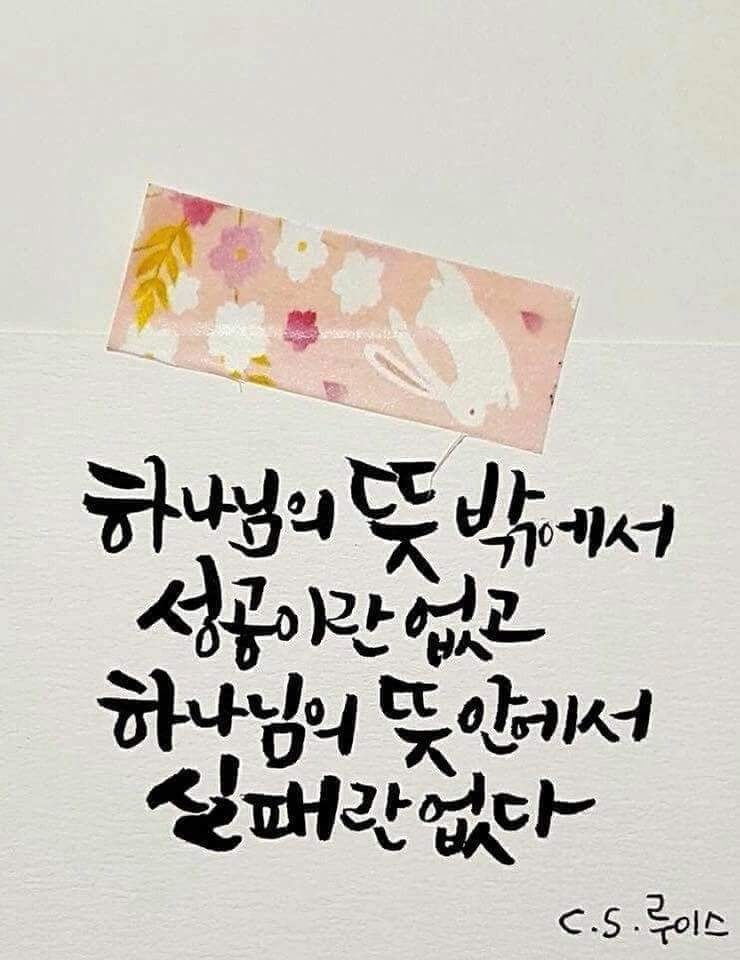 하나님의 뜻 밖에서
성공이란 없고
하나님의 뜻 안에서
실패란 없다
C.S.루이스